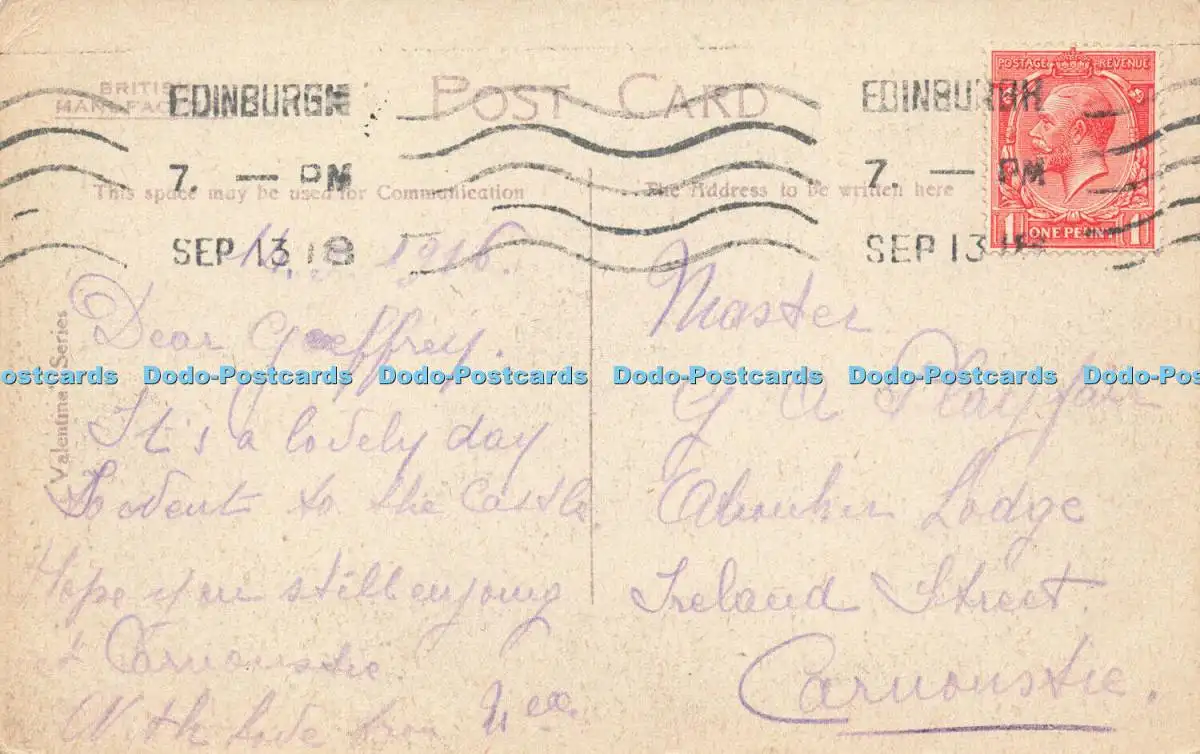 BRITISH
MANUFACTURE
POST CARD
EDINBURGH
7 — PM
SEP 13 18
EDINBURGH
7 — PM
SEP 13
POSTAGE REVENUE
1 ONE PENNY 1
This space may be used for Communication
The Address to be written here
Valentine's Series
Dear Geoffrey.
It's a lovely day
went to the Castle.
Hope you still enjoying
Carnoustie
With love from
Master
G A Playfair
Lodge
Ireland Street
Carnoustie.
ostcards Dodo-Postcards Dodo-Postcards Dodo-Postcards Dodo-Postcards Dodo-P